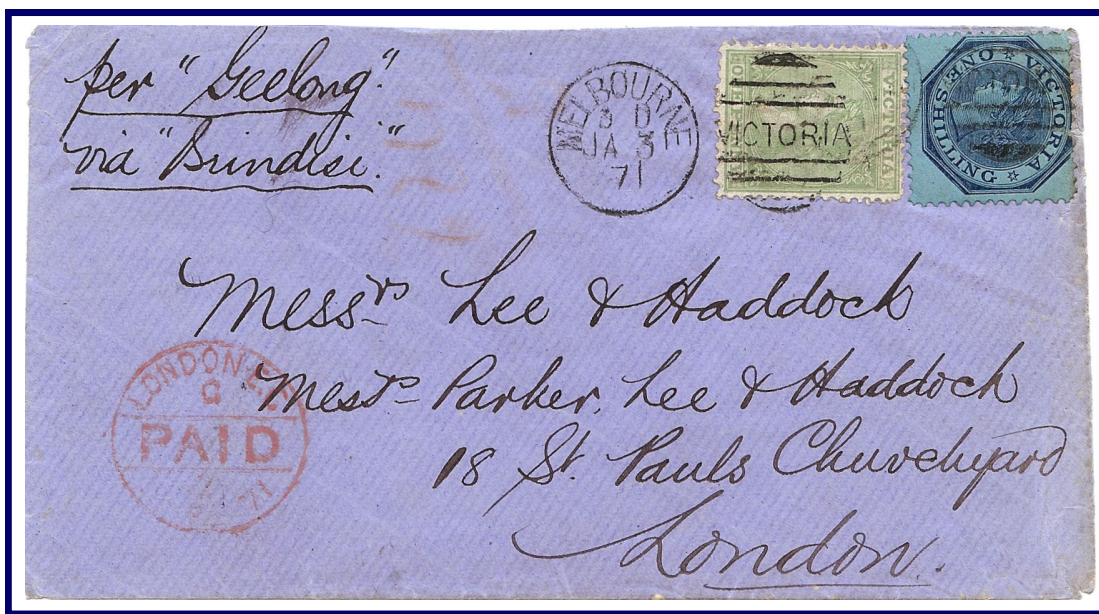 per "Geelong".
via "Brindisi."
MELBOURNE
JA 3
71
VICTORIA
VICTORIA
VICTORIA
ONE SHILLING
Messrs Lee & Haddock
Messrs Parker, Lee & Haddock
18 St. Pauls Churchyard
London.
LONDON
PAID
71